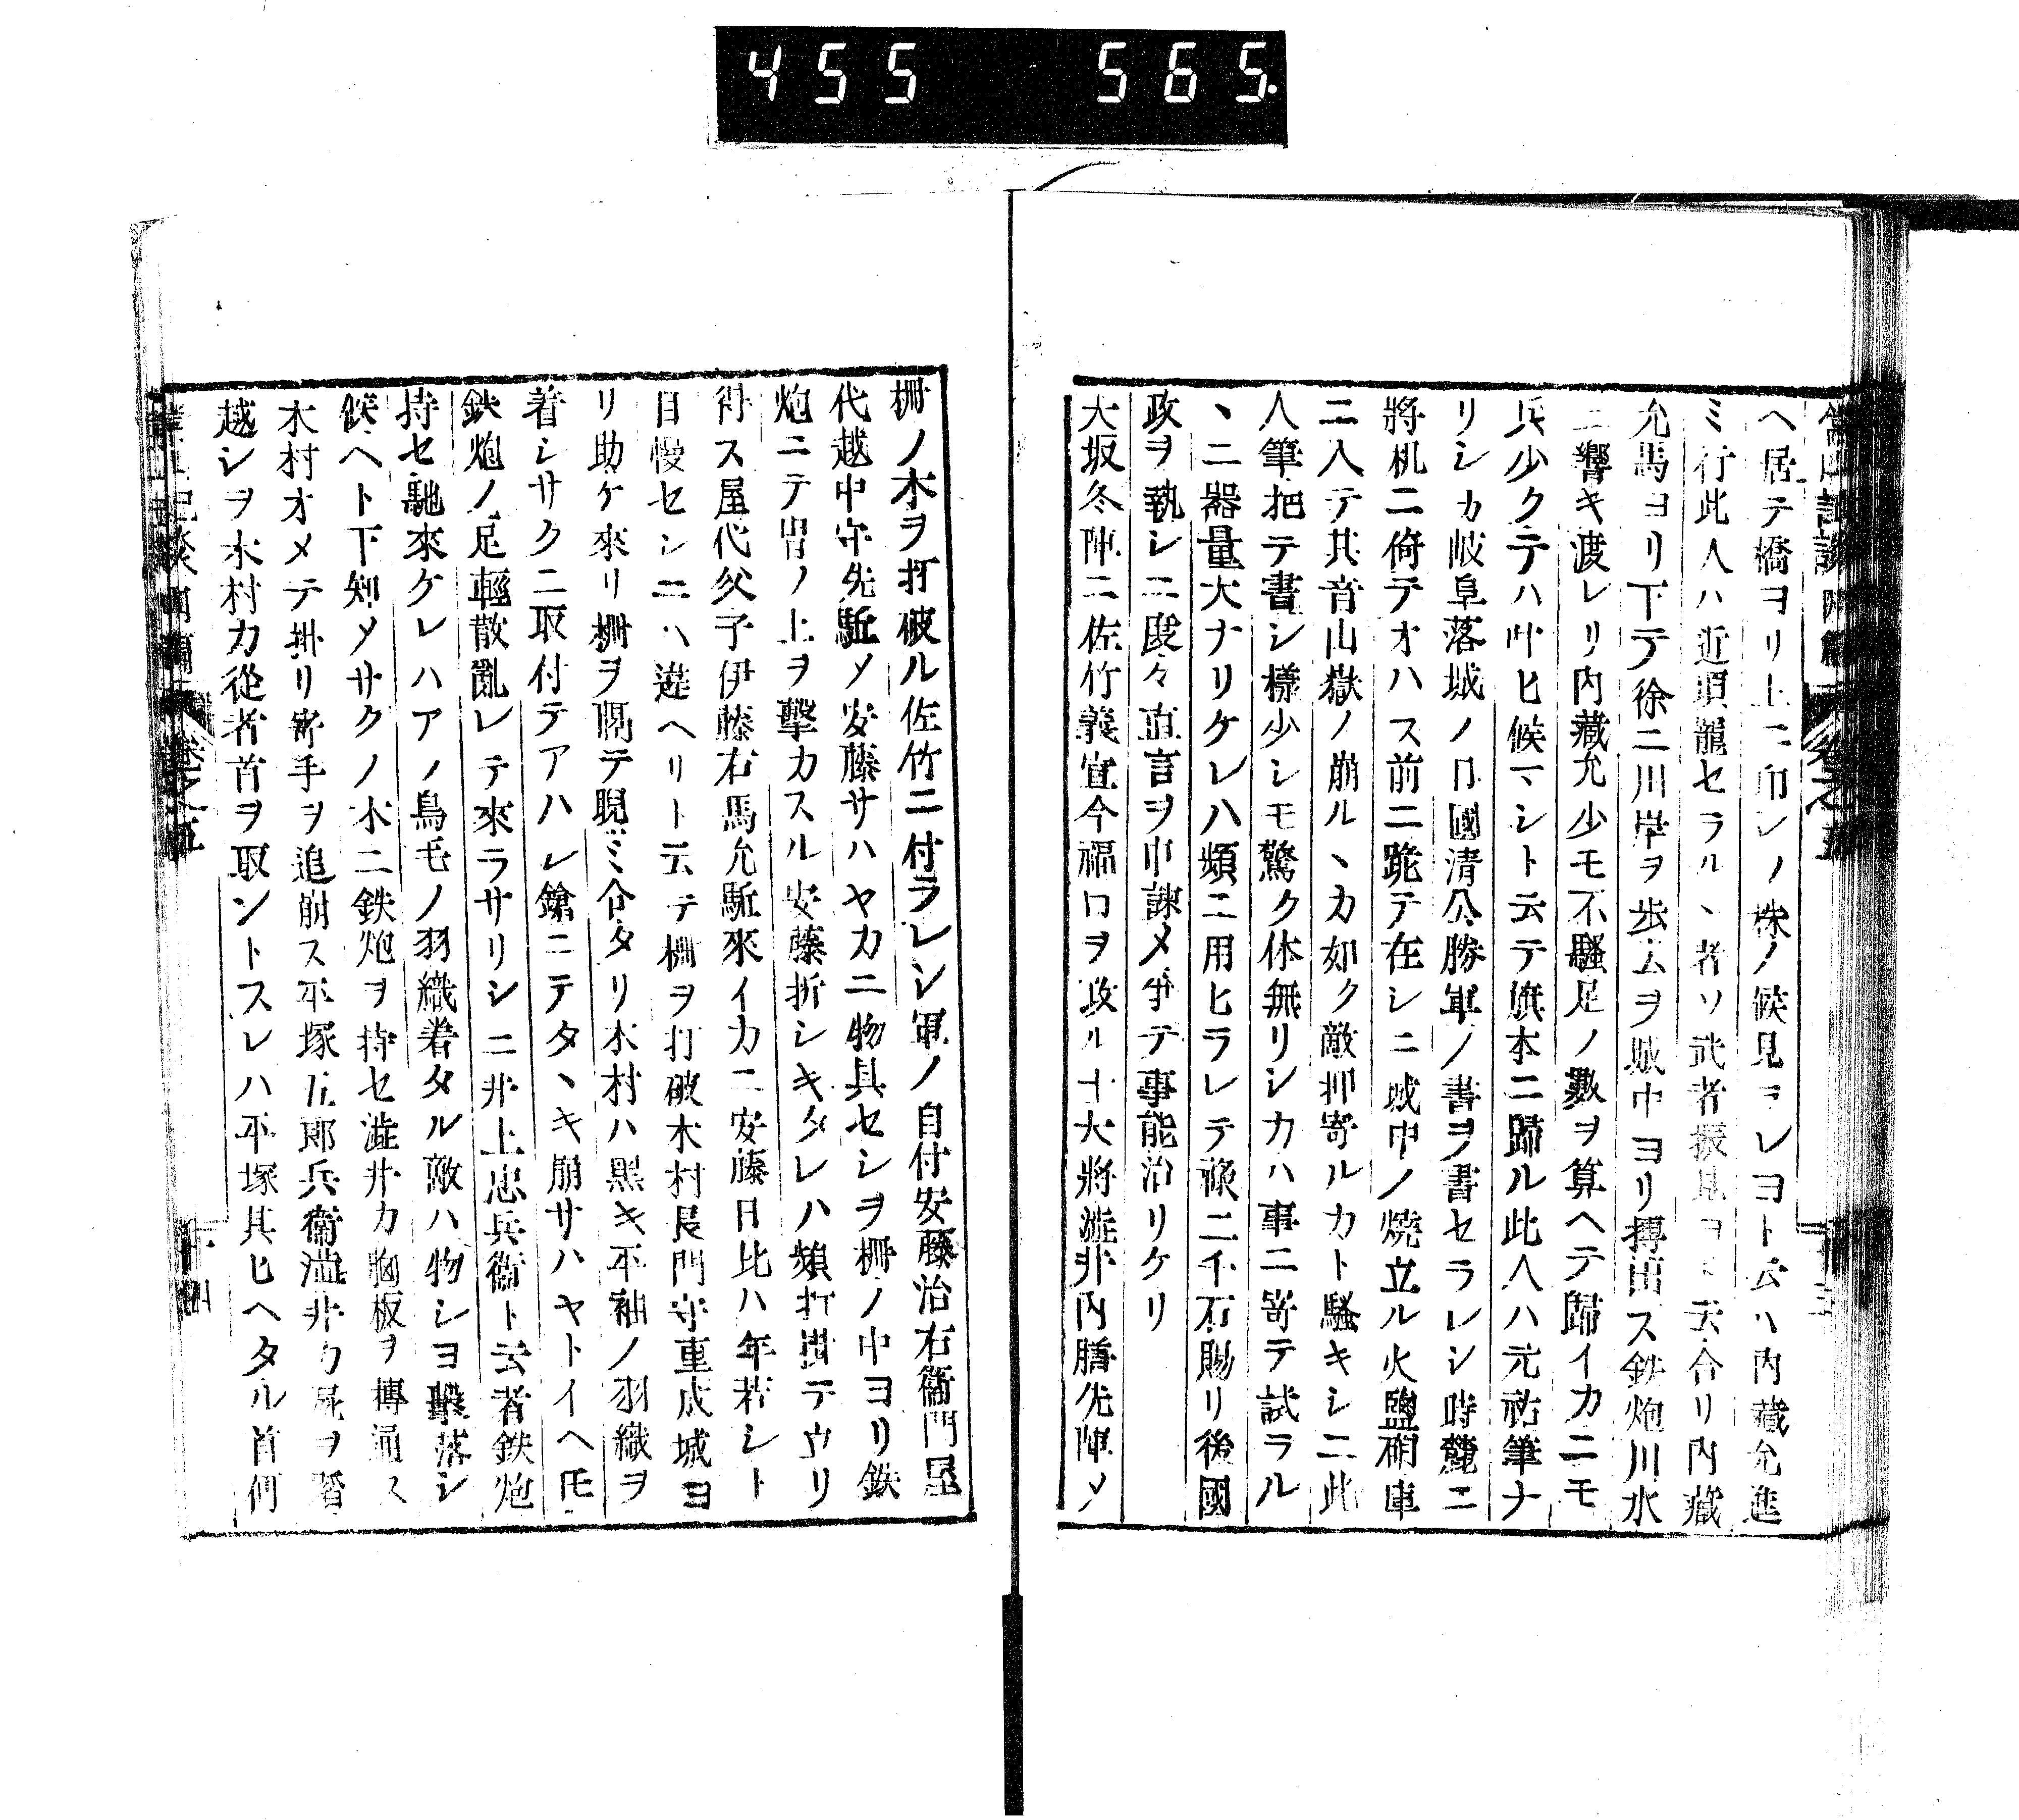 455 565.
ヘ居テ橋ヨリ上ニ印シノ株ノ候見ヨレヨト云ハ内藏允進
ミ行此人ハ近頃龍セラルヽ者ソ武者振見ヨト云合リ内藏
允馬ヨリ下テ徐ニ川岸ヲ歩ムヲ城中ヨリ搏出ス鉄炮川水
ニ響キ渡レリ内藏允少モ不騒足ノ數ヲ算ヘテ歸イカニモ
兵少クテハ叶ヒ候マシト云テ旗本ニ歸ル此人ハ元祐筆ナ
リシカ岐阜落城ノ日國清公勝軍ノ書ヲ書セラレシ時麓ニ
將机ニ倚テオハス前ニ跪テ在シニ城中ノ燒立ル火鹽硝庫
ニ入テ其音山嶽ノ崩ルヽカ如ク敵押寄ルカト騒キシニ此
人筆把テ書シ樣少シモ驚ク体無リシカハ事ニ寄テ試ラル
ヽニ器量大ナリケレハ頻ニ用ヒラレテ祿二千石賜リ後國
政ヲ執シニ度々直言ヲ申諫メ爭テ事能治リケリ
大坂冬陣ニ佐竹義宣今福口ヲ攻ル十大將澁井内膳先陣メ
柵ノ木ヲ打破ル佐竹ニ付ラレシ軍ノ目付安藤治右衛門屋
代越中守先駈メ安藤サハヤカニ物具セシヲ柵ノ中ヨリ鉄
炮ニテ冑ノ上ヲ撃カスル安藤折シキタレハ頻打掛テウリ
得ス屋代父子伊藤右馬允駈來イカニ安藤日比ハ年若シト
自慢セシニハ違ヘリト云テ柵ヲ打破木村長門守重成城ヨ
リ助ケ來リ柵ヲ隔テ睨ミ合タリ木村ハ黒キ平袖ノ羽織ヲ
着シサクニ取付テアハレ鎗ニテタヽキ崩サハヤトイヘ𪜈
鉄炮ノ足輕散亂レテ來ラサリシニ井上忠兵衞ト云者鉄炮
持セ馳來ケレハアノ鳥毛ノ羽織着タル敵ハ物シヨ撃落シ
候ヘト下知メサクノ木ニ鉄炮ヲ持セ澁井カ胸板ヲ搏通ス
木村オメテ掛リ寄手ヲ追崩ス平塚五郎兵衞澁井カ屍ヲ踏
越シヲ木村カ從者首ヲ取ントスレハ平塚其ヒヘタル首何
卷之五